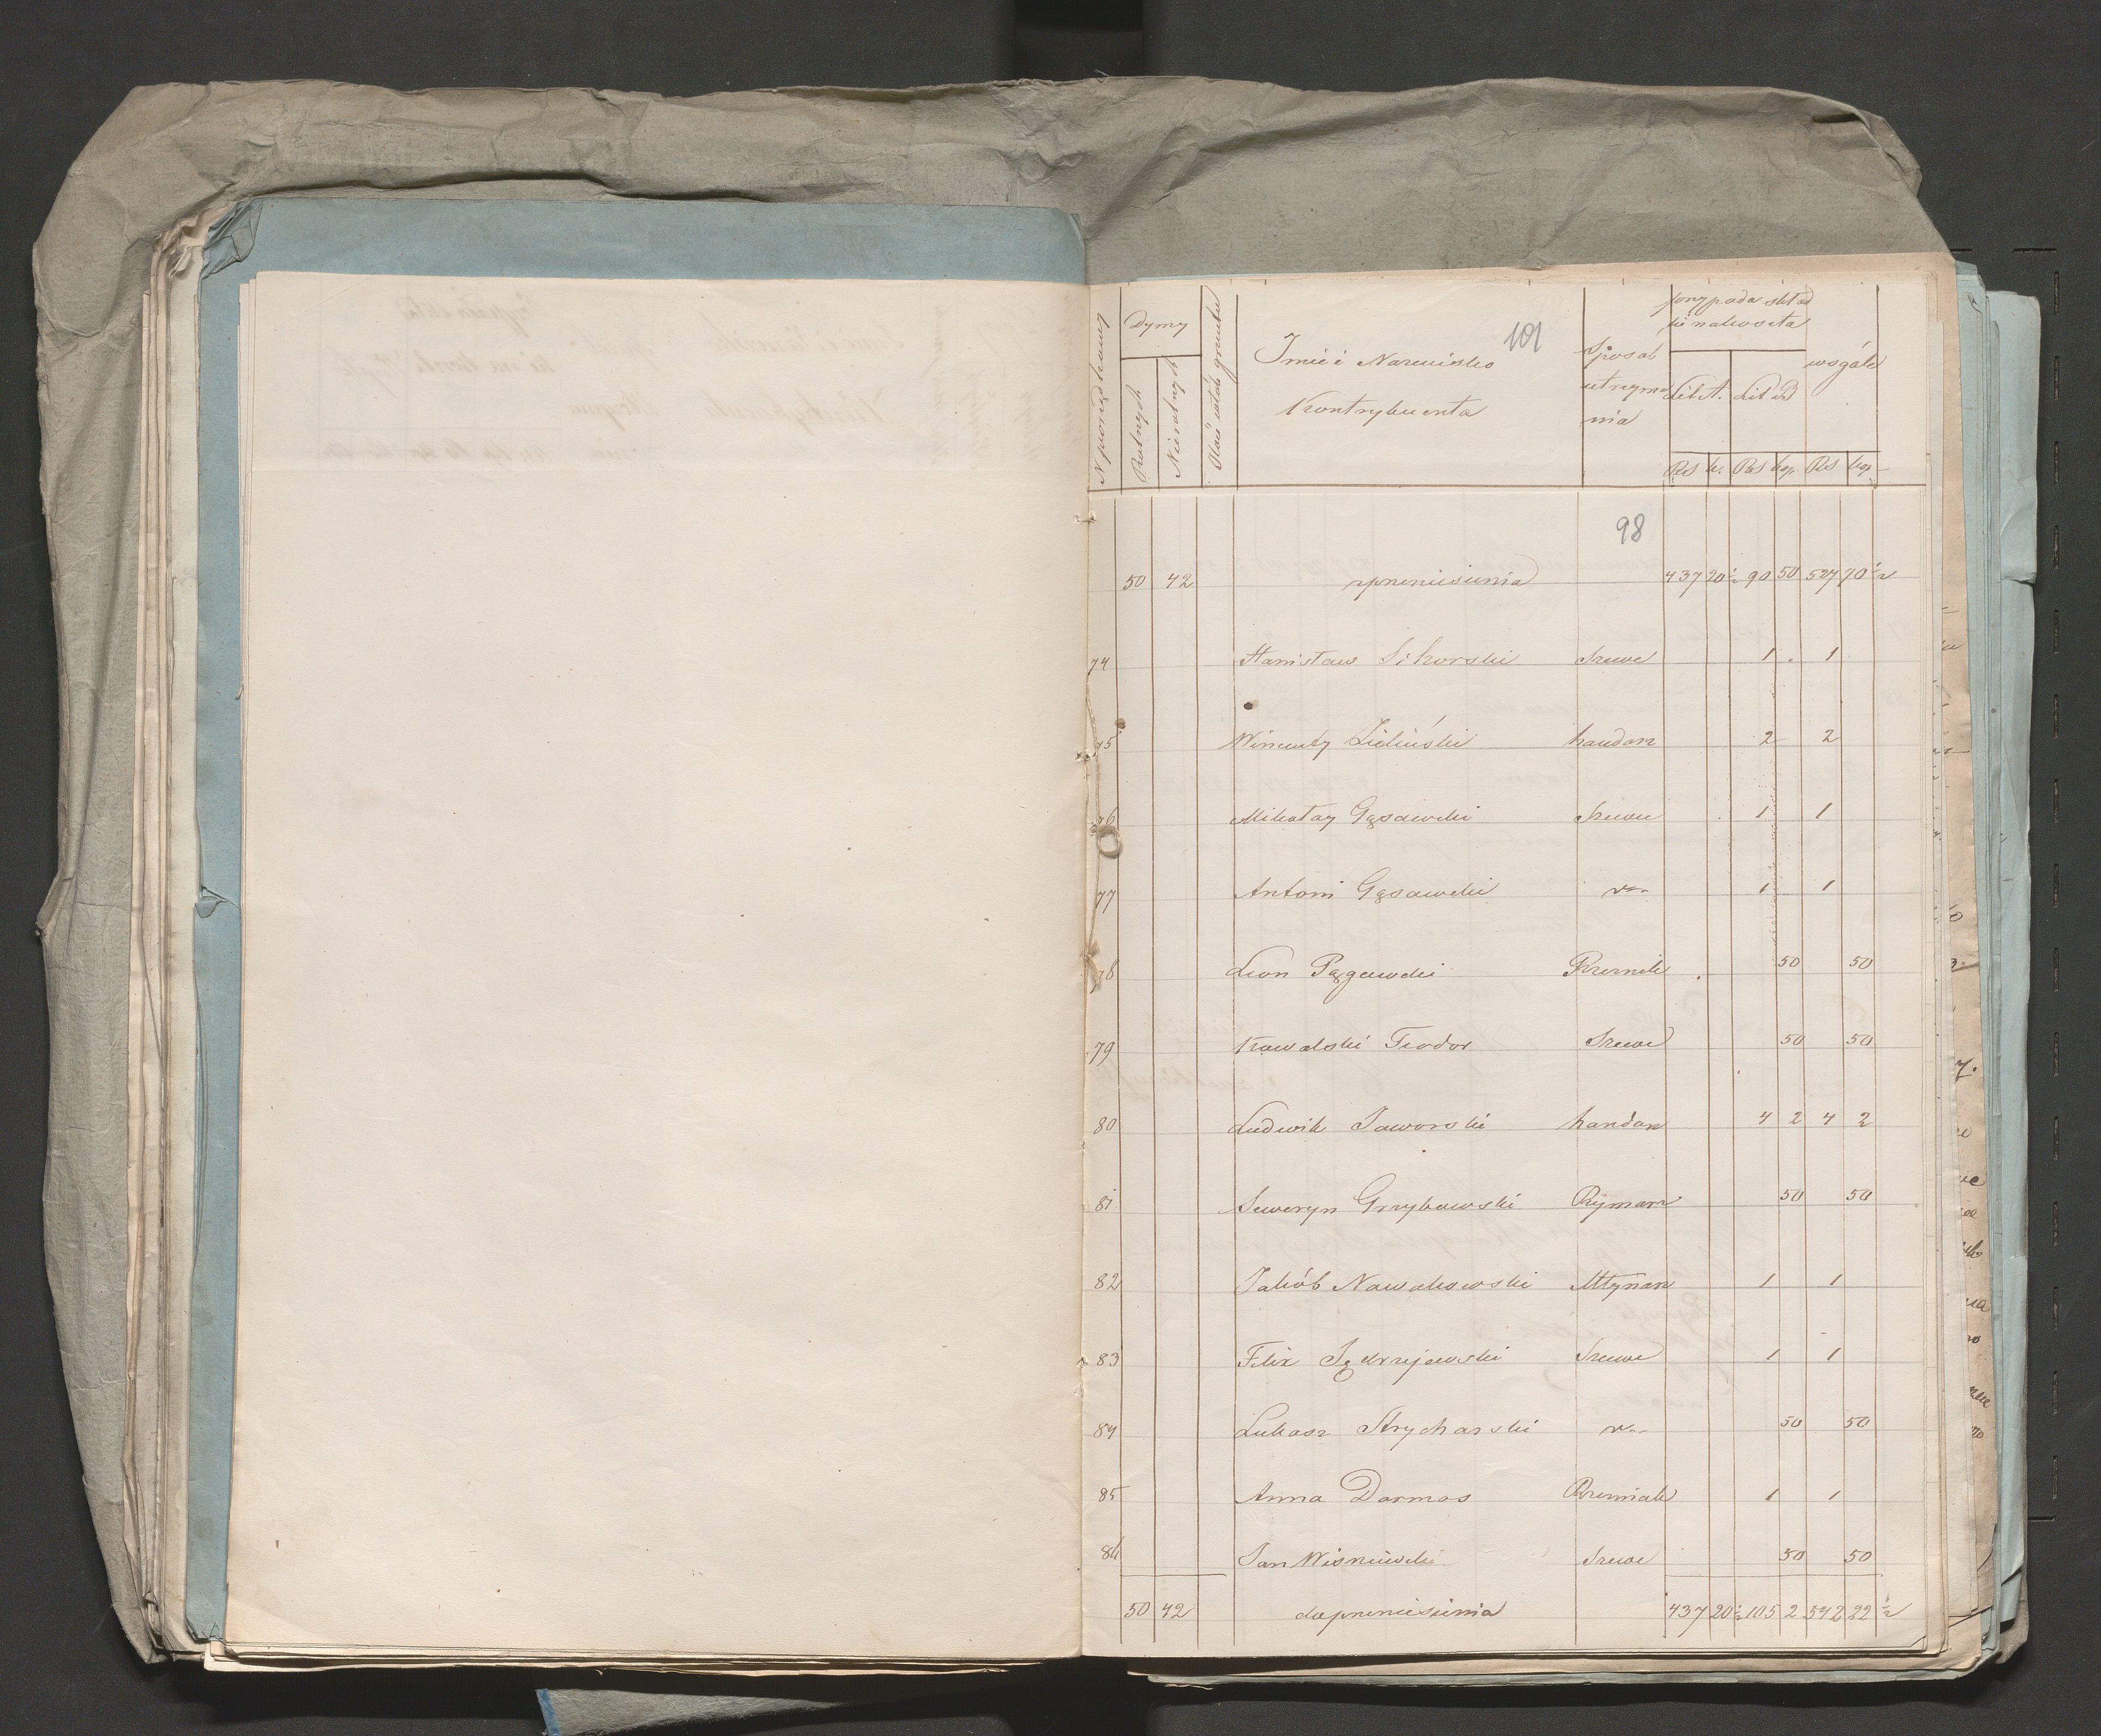 101
N porządkowy
Dymy
Ratnych
Nieratnych
Ilość gruntu
Imie i Nazwisko
Kontrybuenta
Sposób
utrzyma
nia
przypada skład
ki na koszta
Lit A. Lit B
wogóle
Rs k. Rs kop. Rs kop
98
50 42 zprzeniesienia 437 20 1/2 90 50 527 70 1/2
74 Stanisław Sikorski Szewc 1 . 1
75 Wincenty Zieliński handarz 2 2
76 Mikołay Gąsawski Szewc 1 1
77 Antoni Gąsawski 1 1
78 Leon Rzeznik 50 50
79 Kowalski Teodor Szewc 50 50
80 Ludwik Jaworski handarz 4 2 4 2
81 Seweryn Grzybowski Rymarz 50 50
82 Jakób Nowakowski Młynarz 1 1
83 Felix Szewc 1 1
84 Lukasz Strycharski 50 50
85 Anna Darmas 1 1
86 Jan Wisniewski Szewc 50 50
50 42 doprzeniesienia 437 20 1/2 105 2 542 22 1/2